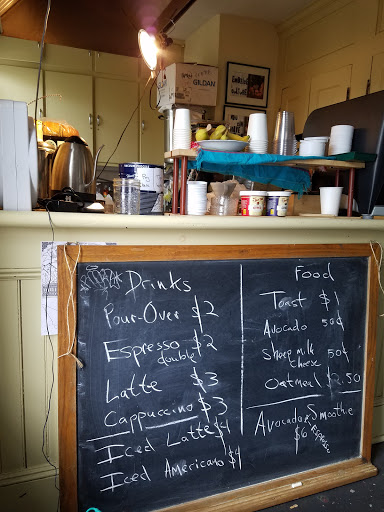 GILDAN
Drinks
Pour-Over $2
Espresso $2
double
Latte $3
Cappuccino $3
Iced Latte $4
Iced Americano $4
Food
Toast $1
Avocado 50¢
Sheep milk 50¢
cheese
Oatmeal $2.50
Avocado & Smoothie
$6 Espresso